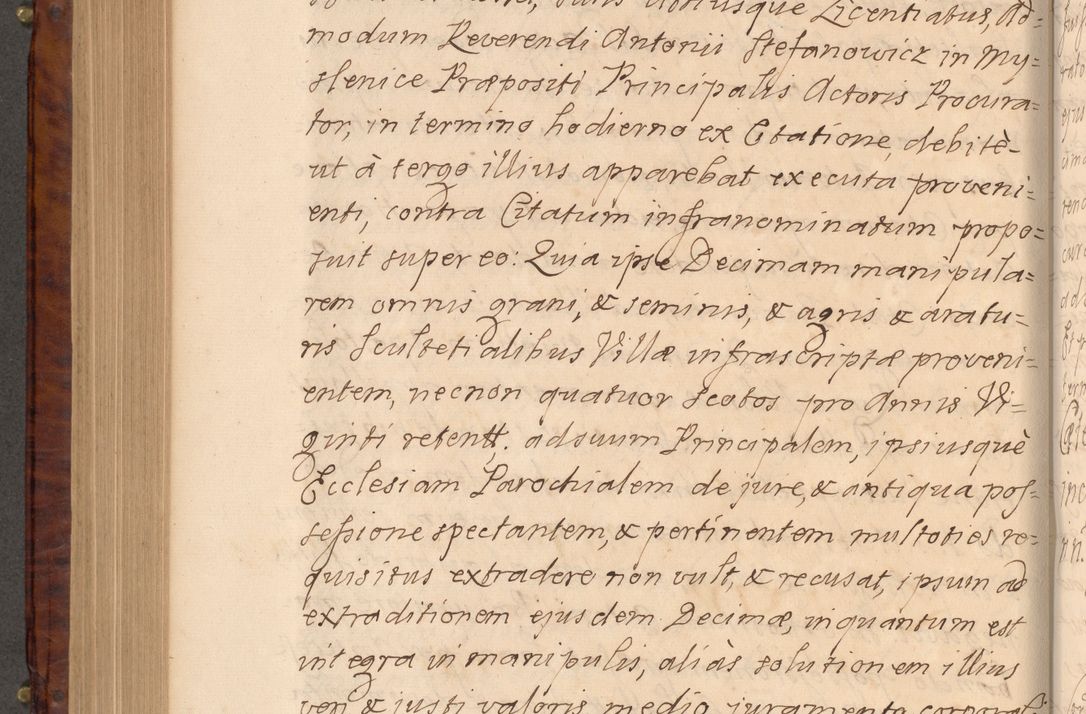 Juris utriusque Licentiatus, Ad=
modum Reverendi Antonii Stefanowicz in My=
slenice Præpositi Principalis Actoris Procura=
tor, in termino hodierno ex Citatione, debitè
ut à tergo illius apparebat executa proveni=
enti, contra Citatum infranominatum propo=
suit super eo: Quia ipse Decimam manipula=
rem omnis grani, & seminis, & agris & aratu=
ris Scultetialibus Villæ infrascriptæ proveni=
entem, necnon quatuor Scotos pro Annis Vi=
ginti retent. ad suum Principalem, ipsiusquè
Ecclesiam Parochialem de jure, & antiqua pos=
sessione spectantem, & pertinentem multoties re=
quisitus extradere non vult, & recusat, ipsum ad
extraditionem ejusdem Decimæ, inquantum est
integra in manipulis, aliàs solutionem illius
veri & justi valoris medio juramento corporal